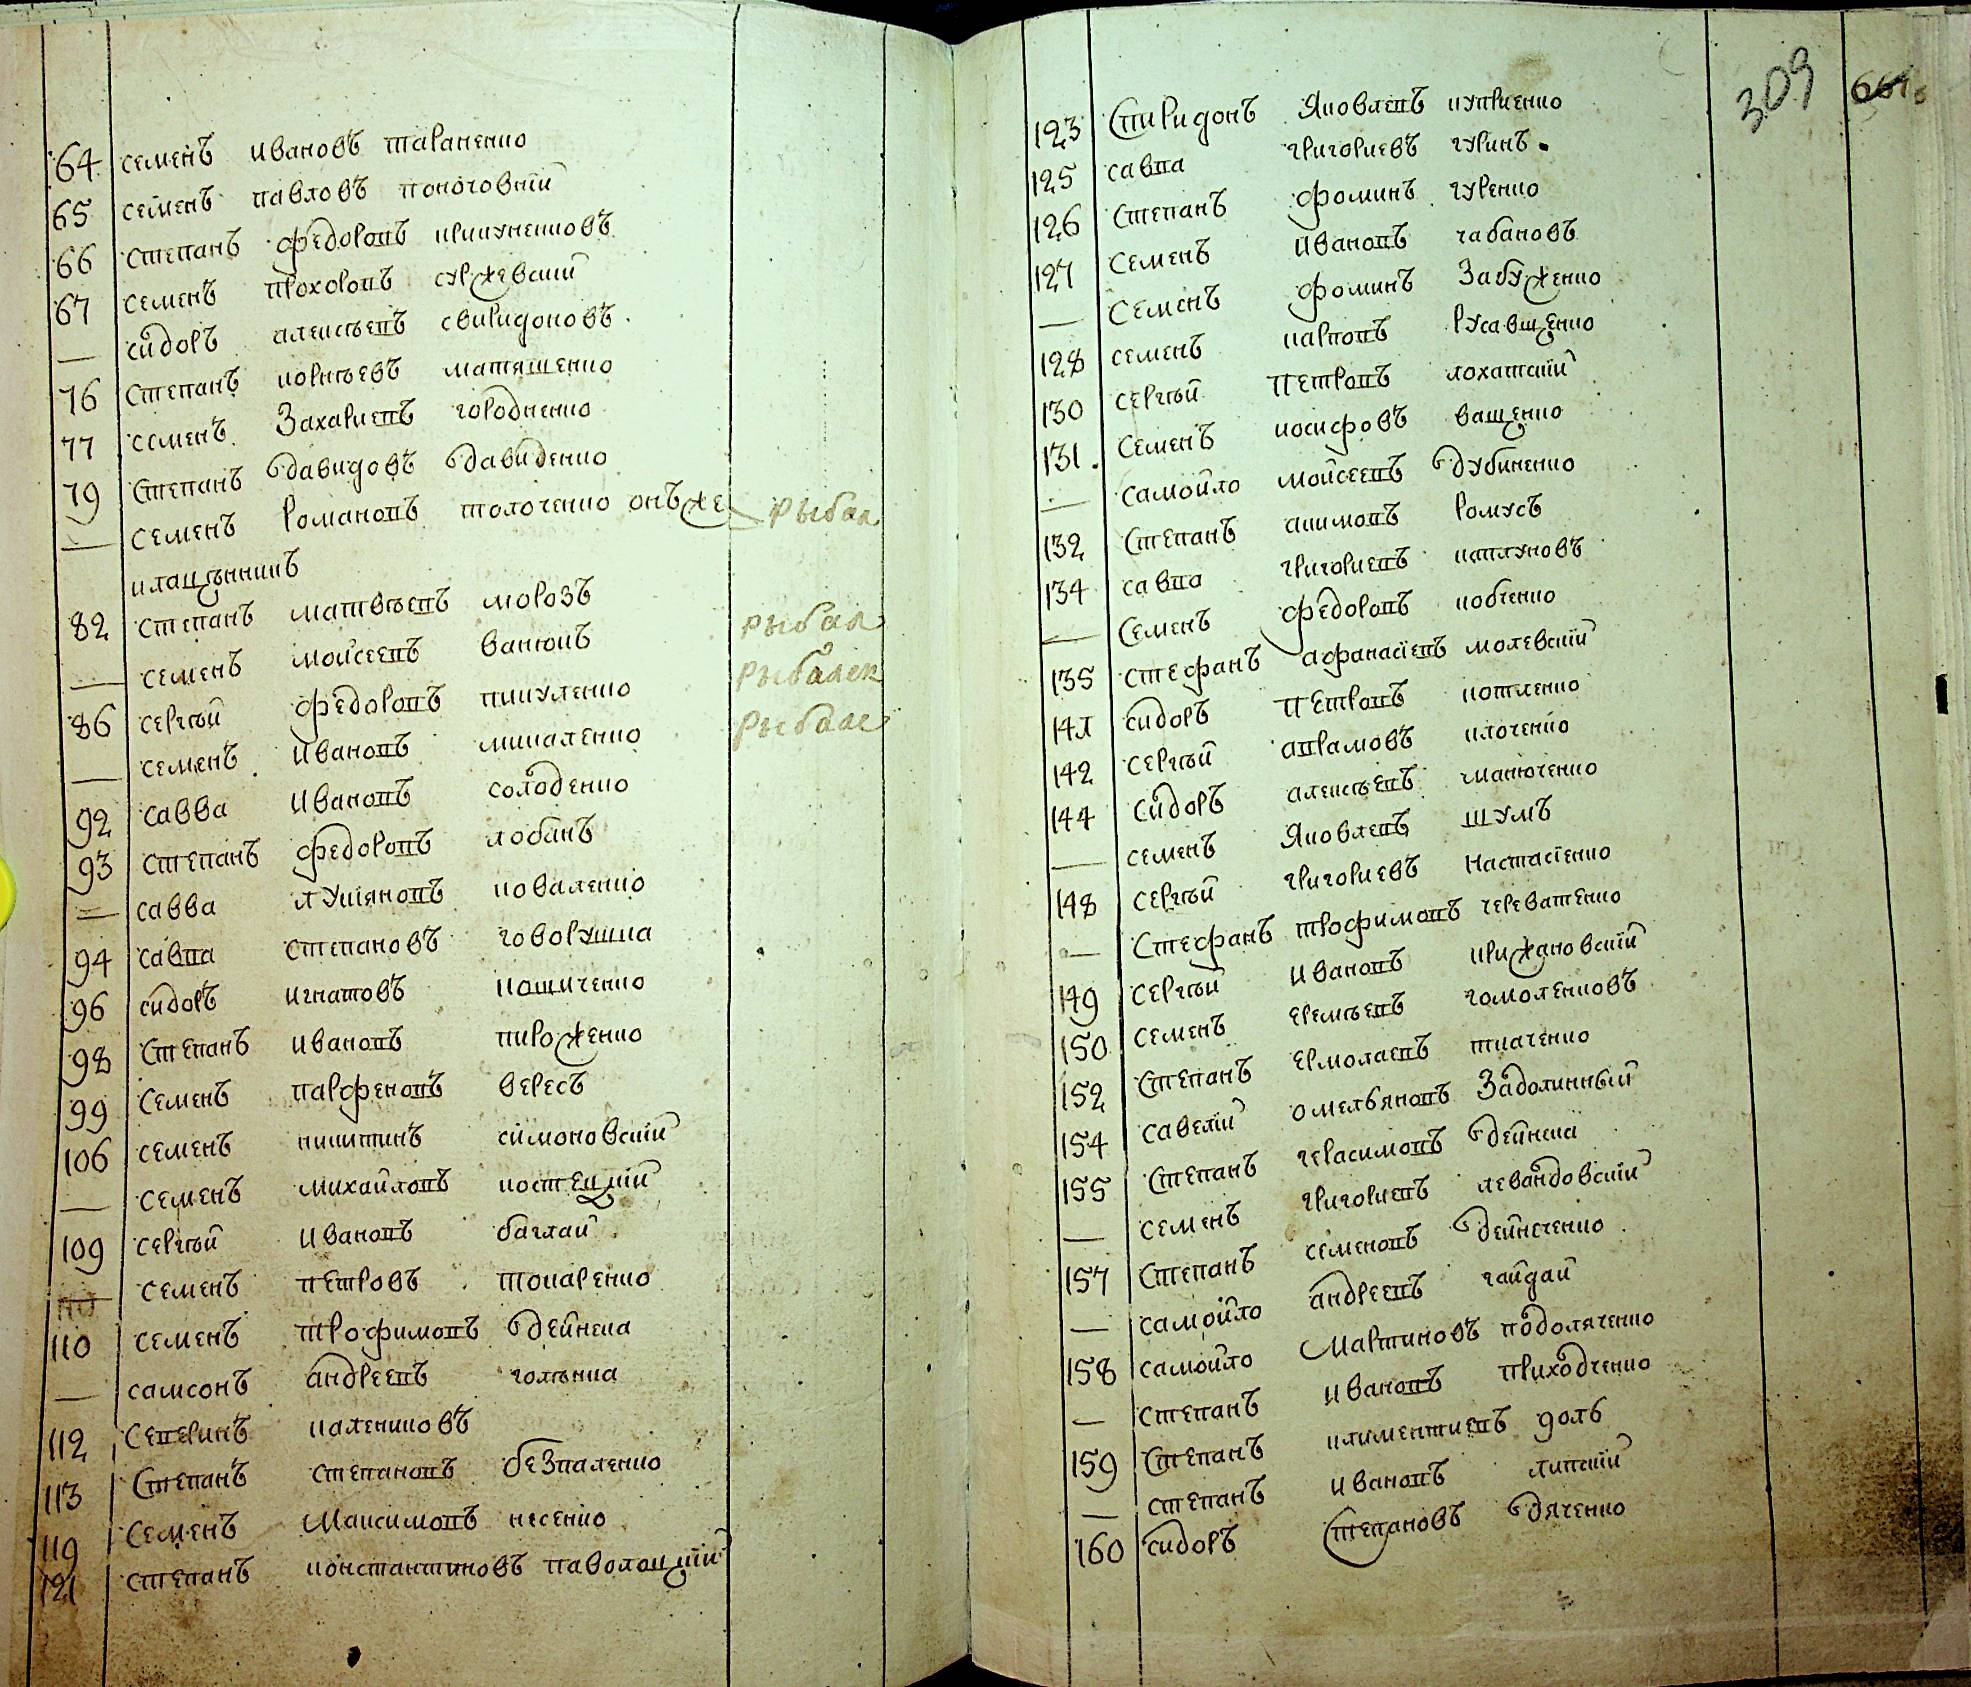 64 семенъ ивановъ тараненко
65 семенъ павловъ
66 степанъ федоровъ крикуненковъ
67 семенъ прохоровъ суржевский
— сидоръ алексѣевъ свиридоновъ
76 степанъ корнѣевъ матяшенко
77 семенъ Захариевъ городненко
79 степанъ давидовъ давиденко
— семенъ романовъ толоченко онъже рыбал
82 степанъ матвѣевъ морозъ рыбал
— семенъ моисеевъ ванюкъ рыбалек
86 сергѣй федоровъ пикуленко рыбалс
— семенъ ивановъ микаленко
92 савва ивановъ солоденко
93 степанъ федоровъ лобанъ
— савва лукіяновъ коваленко
94 савва степановъ говоруша
96 сидоръ игнатовъ кошиченко
98 степанъ ивановъ пироженко
99 семенъ парфеновъ вересъ
106 семенъ никитинъ симоновскій
— семенъ михайловъ костецкій
109 сергѣй ивановъ баглай
— семенъ петровъ токаренко
110 семенъ трофимовъ дейнека
— самсонъ андреевъ голѣнка
112 северинъ калениковъ
113 степанъ степановъ безпаленко
119 семенъ максимовъ несенко
121 степанъ константиновъ паволоцкій
309
123 спиридонъ яковлевъ куприенко
125 савва григориевъ гуринъ
126 степанъ фоминъ гуренко
127 семенъ ивановъ чабановъ
— семенъ фоминъ Забуженко
128 семенъ карповъ русавщенко
130 сергѣй петровъ лохатскій
131 семенъ иосифовъ ващенко
— самойло моисеевъ дубиненко
132 степанъ акимовъ ромусъ
134 савва григориевъ каплуновъ
— семенъ федоровъ кобченко
135 стефанъ афанасіевъ молевскій
141 сидоръ петровъ котленко
142 сергѣй аврамовъ клоченко
144 сидоръ алексѣевъ манюченко
— семенъ яковлевъ шумъ
148 сергѣй григориевъ настасіенко
— стефанъ трофимовъ череватенко
149 сергѣй ивановъ крижановскій
150 семенъ еремѣевъ гомоленковъ
152 степанъ ермолаевъ ткаченко
154 савелій омельяновъ Задолинный
155 степанъ герасимовъ дейнека
— семенъ григориевъ левандовскій
157 степанъ семеновъ дейнеченко
— самойло андреевъ гайдай
158 самойло мартиновъ подоляченко
— степанъ ивановъ приходченко
159 степанъ климентиевъ доль
— степанъ ивановъ липскій
160 сидоръ степановъ дяченко